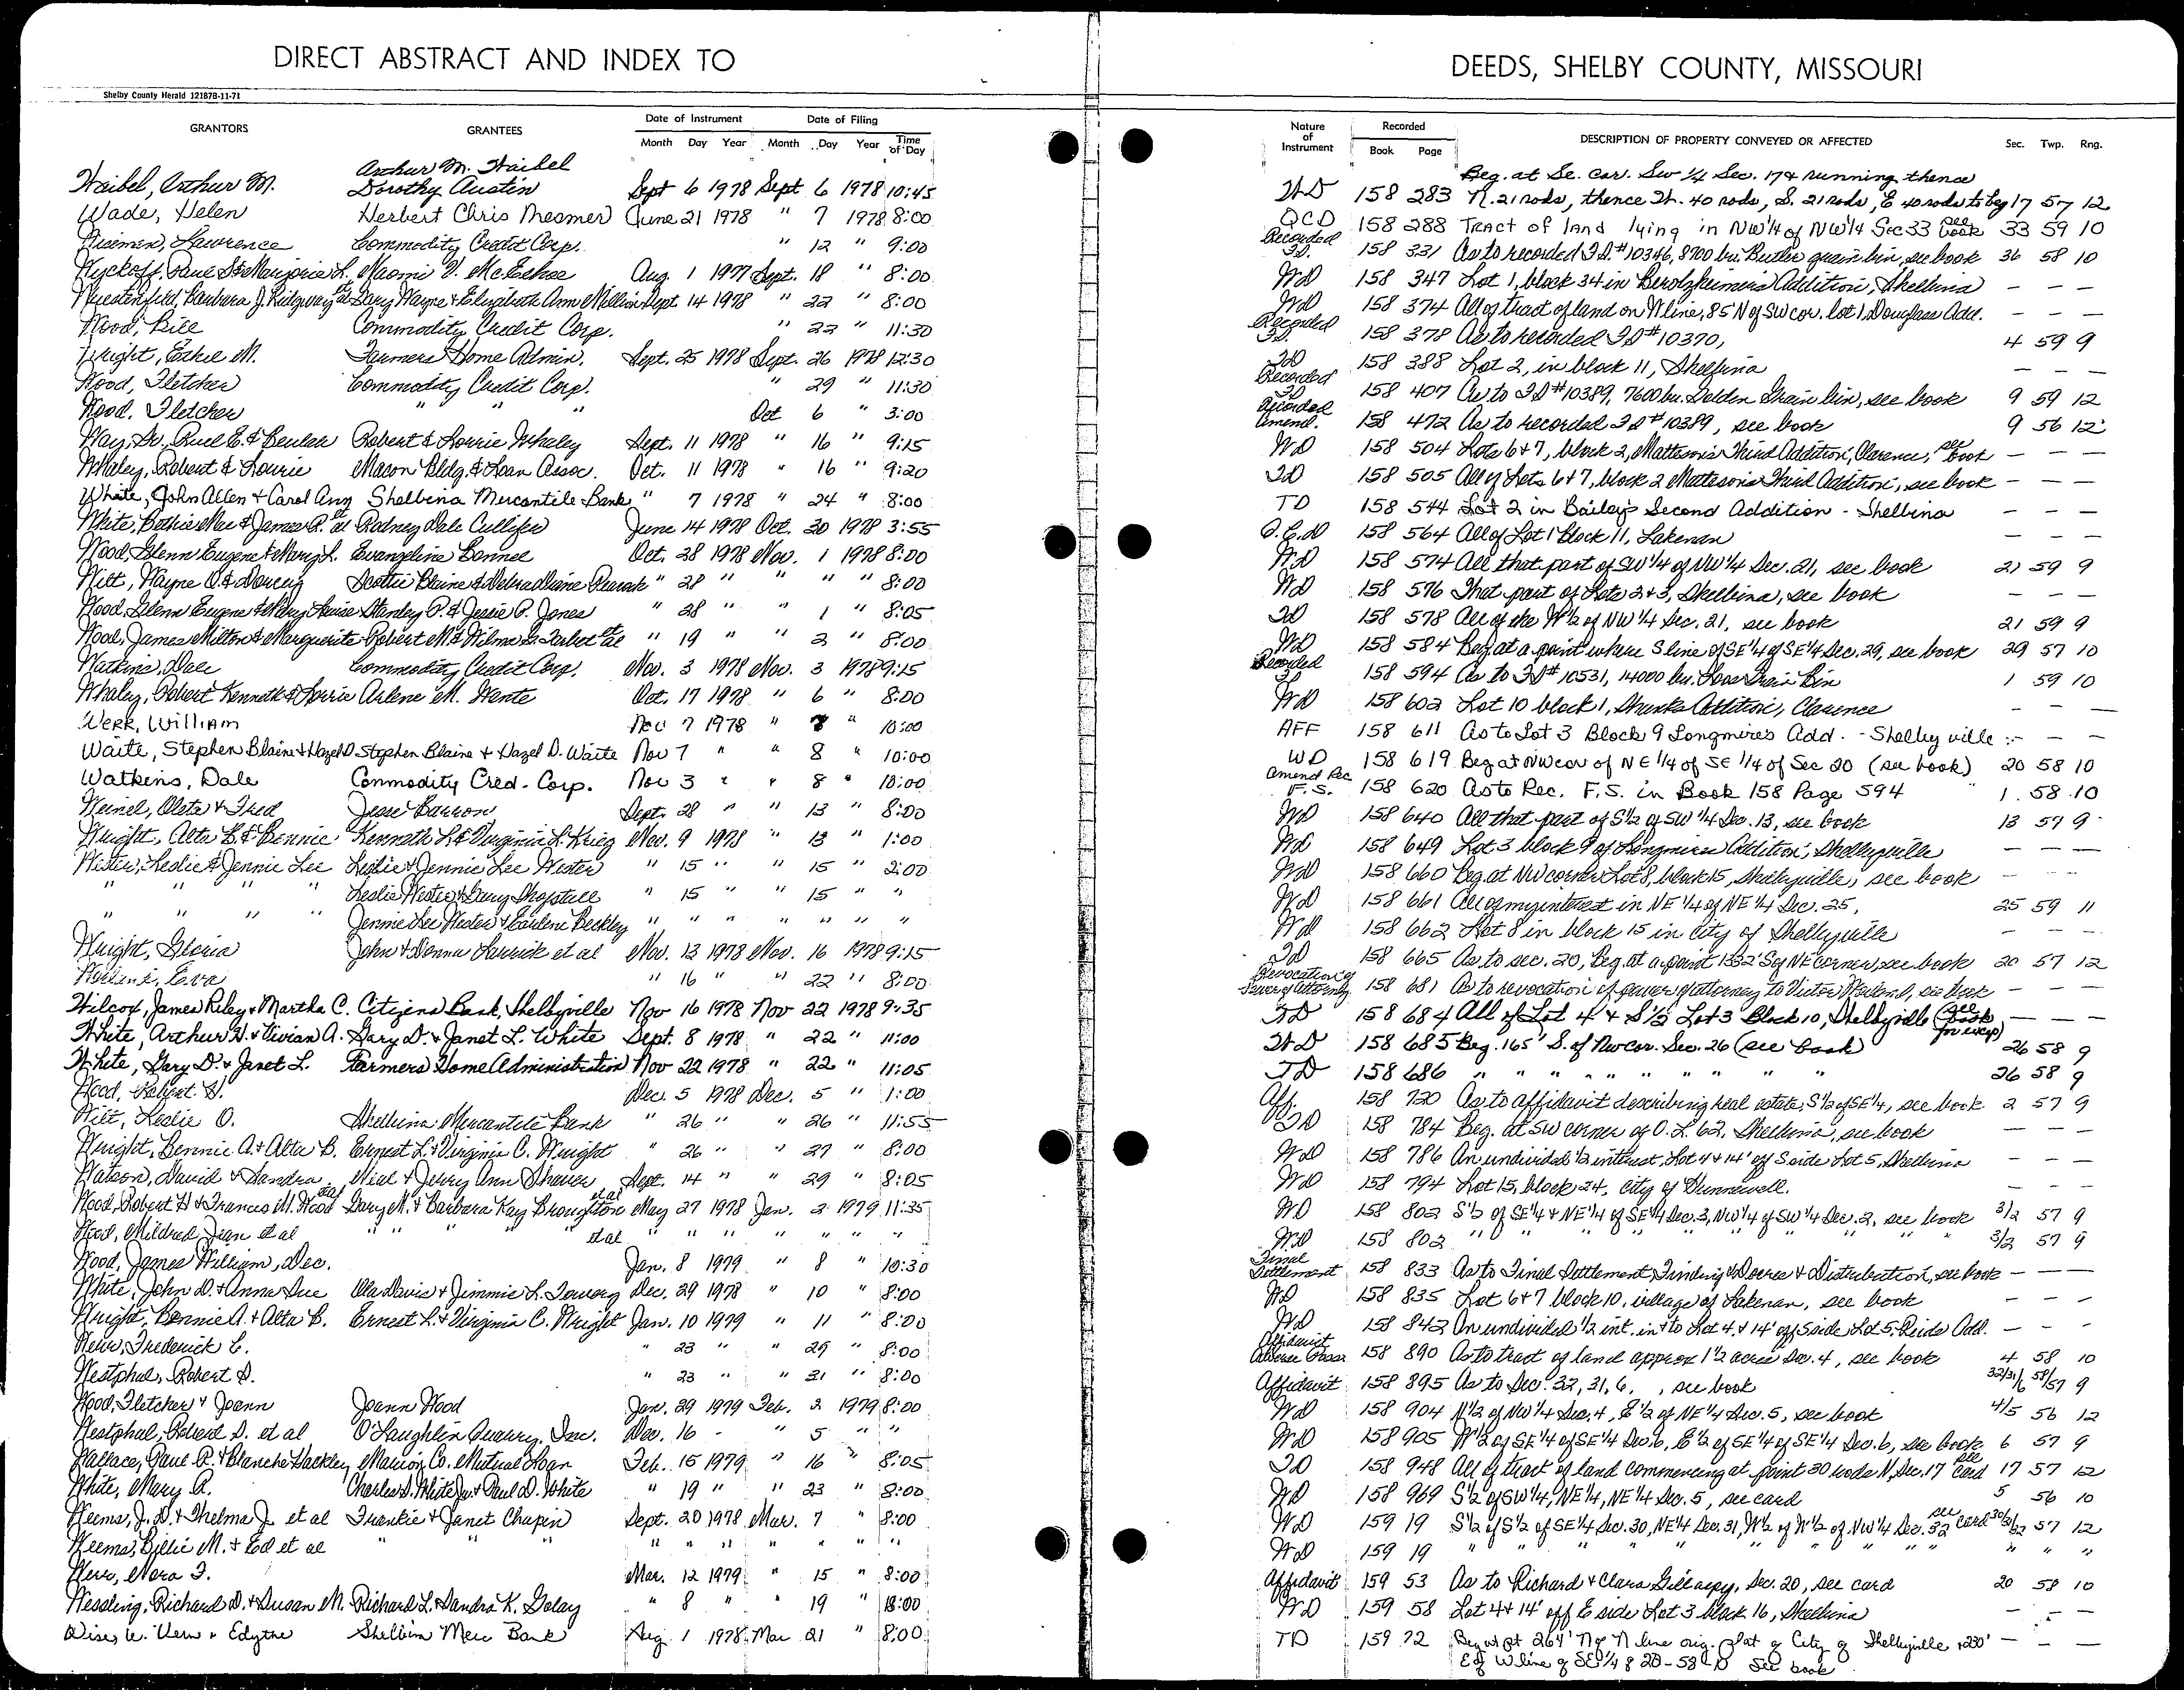 DIRECT ABSTRACT AND INDEX TO
Shelby County Herald 12187B-11-71
GRANTORS GRANTEES Date of Instrument Date of Filing
Month Day Year Month Day Year Time of Day
Arthur M. Waibel
Waibel, Arthur M. Dorothy Austin Sept 6 1978 Sept 6 1978 10:45
Wade, Helen Herbert Chris Mesmer June 21 1978 " 7 1978 8:00
Wiseman, Lawrence Commodity Credit Corp. " 12 " 9:00
Wyckoff, Paul S & Marjorie L. Naomi V. Aug. 1 1977 Sept. 18 " 8:00
Barbara J. Ridgway et al Gary Wayne & Elizabeth Ann Million Sept 14 1978 " 22 " 8:00
Wood, Commodity Credit Corp. " 22 " 11:30
Wright, M. Farmers Home Admin. Sept. 25 1978 Sept. 26 1978 12:30
Wood, Fletcher Commodity Credit Corp. " 29 " 11:30
Wood, Fletcher " " " Oct 6 " 3:00
Way, Sr., Ruel E. & Beulah Robert & Lorrie Whaley Sept. 11 1978 " 16 " 9:15
Whaley, Robert & Lourie Macon Bldg. & Loan Assoc. Oct. 11 1978 " 16 " 9:20
White, John Allen & Carol Ann Shelbina Mercantile Bank " 7 1978 " 24 " 8:00
White, Bettie Mae & James R. et al Rodney Dale June 14 1978 Oct. 30 1978 3:55
Wood, Glenn Eugene & Mary L. Evangeline Bonnel Oct. 28 1978 Nov. 1 1978 8:00
Wilt, Wayne O. & Scottie Blaine & Debra Diane " 28 " " " " 8:00
Wood, Glenn Eugene & Mary Louise Stanley P. & Jessie P. Jones " 28 " " 1 " 8:05
Wood, James Milton & Marguerite Robert M & Wilma et al " 19 " " 2 " 8:00
Watkins, Dale Commodity Credit Corp. Nov. 3 1978 Nov. 3 1978 9:15
Whaley, Robert Kenneth & Lorrie Arlene M. Wente Oct. 17 1978 " 6 " 8:00
Werr, William Nov 7 1978 " 8 " 10:00
Waite, Stephen Blaine & Hazel D. Stephen Blaine & Hazel D. Waite Nov 7 " " 8 " 10:00
Watkins, Dale Commodity Cred. Corp. Nov 3 " " 8 " 10:00
Weinel, Oleta & Fred Jesse Barron Sept. 28 " " 13 " 8:00
Wright, Alta B. & Bennie Kenneth L & Virginia L. Krieg Nov. 9 1978 " 13 " 1:00
Wester, Leslie & Jennie Lee Leslie & Jennie Lee Wester " 15 " " 15 " 2:00
" " " " Leslie Wester & " 15 " " 15 " "
" " " " Jennie Lee Wester & Earlene Beckley " " " " " " "
Wright, Gloria John & Donna et al Nov. 13 1978 Nov. 16 1978 9:15
Eva " 16 " " 22 " 8:00
Wilcox, James Riley & Martha C. Citizens Bank, Shelbyville Nov 16 1978 Nov 22 1978 9:35
White, Arthur H. & Vivian A. Gary D. & Janet L. White Sept. 8 1978 " 22 " 11:00
White, Gary D. & Janet L. Farmers Home Administration Nov 22 1978 " 22 " 11:05
Wood, Robert H. Dec. 5 1978 Dec. 5 " 1:00
Wilt, Leslie O. Shelbina Mercantile Bank " 26 " " 26 " 11:55
Wright, Bennie A. & Alta B. Ernest L. & Virginia C. Wright " 26 " " 27 " 8:00
Watson, David & Sandra & Jerry Ann Shaver Sept. 14 " " 29 " 8:05
Wood, Robert H & Frances M. Wood et al Gary M. & Barbara Kay Broughton et al May 27 1978 Jan. 2 1979 11:35
Wood, Mildred Jean et al " " " " et al " " " " " " "
Wood, James William, Dec. Jan. 8 1979 " 8 " 10:30
White, John D. & Anna Sue Ola Davis & Jimmie L. Dec. 29 1978 " 10 " 8:00
Wright, Bennie A. & Alta B. Ernest L. & Virginia C. Wright Jan. 10 1979 " 11 " 8:00
Weir, Frederick C. " 23 " " 29 " 8:00
Westphal, Robert D. " 23 " " 31 " 8:00
Wood, Fletcher & Joann Joann Wood Jan. 29 1979 Feb. 2 1979 8:00
Westphal, Robert D. et al O'Laughlin Quarry, Inc. Dec. 16 - " 5 " "
Wallace, Paul R. & Blanche Hackley Marion Co. Mutual Loan Feb. 15 1979 " 16 " 8:05
White, Mary A. Charles D. White Jr. & Paul D. White " 19 " " 23 " 8:00
Weems, J. D. & Thelma J. et al Frankie & Janet Chapin Sept. 20 1978 Mar. 7 " 8:00
Weems, Billie M. & Ed et al " " " " " " " " " "
Werr, Nora F. Mar. 12 1979 " 15 " 8:00
Wessling, Richard D. & Susan M. Richard L. & Sandra K. Golay " 8 " " 19 " 18:00
Wise, W. Vern & Edythe Shelbina Merc Bank Aug 1 1978 Mar 21 " 8:00
DEEDS, SHELBY COUNTY, MISSOURI
Nature of Instrument Recorded Book Page DESCRIPTION OF PROPERTY CONVEYED OR AFFECTED Sec. Twp. Rng.
Beg. at Se. cor. Sw 1/4 Sec. 17 & running thence
WD 158 283 N. 21 rods, thence W. 40 rods, S. 21 rods, E 40 rods to beg 17 57 12
QCD 158 288 Tract of land lying in NW 1/4 of NW 1/4 Sec 33 see book 33 59 10
Recorded F.S. 158 331 As to recorded F.S. #10346, 8700 bu. Butler grain bin, see book 36 58 10
WD 158 347 Lot 1, block 34 in Berolzheimers Addition, Shelbina — — —
WD 158 374 All of tract of land on W line, 85' N of SW cor. lot 1, Douglass Add. — — —
Recorded F.S. 158 378 As to recorded F.S. #10370, 4 59 9
TD 158 388 Lot 2, in block 11, Shelbina — — —
Recorded F.S. 158 407 As to F.S. #10389, 7600 bu. Golden Grain bin, see book 9 59 12
Recorded Amend. 158 472 As to recorded F.S. #10389, see book 9 56 12
WD 158 504 Lots 6 & 7, block 2, Mattesons Third Addition, Clarence, see book — — —
TD 158 505 All of Lots 6 & 7, block 2 Mattesons Third Addition, see book — — —
TD 158 544 Lot 2 in Bailey's Second Addition - Shelbina — — —
Q.C.D 158 564 All of Lot 1 block 11, Lakenan — — —
WD 158 574 All that part of SW 1/4 of NW 1/4 Sec. 21, see book 21 59 9
WD 158 576 That part of Lots 2 & 3, Shelbina, see book — — —
TD 158 578 All of the W 1/2 of NW 1/4 Sec. 21, see book 21 59 9
WD 158 584 Beg. at a point where S line of SE 1/4 of SE 1/4 Sec. 29, see book 29 57 10
Recorded F.S. 158 594 As to F.S. #10531, 14000 bu. Grain Bin 1 59 10
WD 158 602 Lot 10 block 1, Shunks Addition, Clarence — — —
AFF 158 611 As to Lot 3 Block 9 Longmires Add. - Shelbyville — — —
WD 158 619 Beg at NW cor of NE 1/4 of SE 1/4 of Sec 20 (see book) 20 58 10
Amend Rec. F.S. 158 620 As to Rec. F.S. in Book 158 Page 594 1 58 10
WD 158 640 All that part of S 1/2 of SW 1/4 Sec. 13, see book 13 57 9
WD 158 649 Lot 3 block 9 of Longmires Addition, Shelbyville — — —
WD 158 660 Beg. at NW corner Lot 8, block 15, Shelbyville, see book — — —
WD 158 661 All of my interest in NE 1/4 of NE 1/4 Sec. 25, 25 59 11
WD 158 662 Lot 8 in block 15 in City of Shelbyville — — —
TD 158 665 As to sec. 20, Beg. at a point 1332' S of NE corner, see book 20 57 12
Revocation of Power of Attorney 158 681 As to revocation of power of attorney to Victor see book — — —
TD 158 684 All of Lot 4 & S 1/2 Lot 3 Block 10, Shelbyville (see book for excep) — — —
WD 158 685 Beg. 165' S. of Nw Cor. Sec. 26 (see book) 26 58 9
TD 158 686 " " " " " " " " " " 26 58 9
Aff. 158 720 As to affidavit describing real estate, S 1/2 of SE 1/4, see book 2 57 9
TD 158 784 Beg. at SW corner of O.L. 62, Shelbina, see book — — —
WD 158 786 An undivided 1/2 interest, Lot 4 & 14' off S side Lot 5, Shelbina — — —
WD 158 794 Lot 15, block 24, City of Hunnewell. — — —
WD 158 802 S 1/2 of SE 1/4 & NE 1/4 of SE 1/4 Sec. 3, NW 1/4 of SW 1/4 Sec. 2, see book 3/2 57 9
WD 158 802 " " " " " " " " 3/2 57 9
Final Settlement 158 833 As to Final Settlement, Finding & Decree & Distribution, see book — — —
WD 158 835 Lot 6 & 7 block 10, village of Lakenan, see book — — —
WD 158 842 An undivided 1/2 int. in & to Lot 4 & 14' off S side Lot 5, Reids Add. — — —
Affidavit Adverse Poss. 158 890 As to tract of land approx 1 1/2 acres Sec. 4, see book 4 58 10
Affidavit 158 895 As to Sec. 32, 31, 6, see book 32/31/6 58/57 9
WD 158 904 N 1/2 of NW 1/4 Sec. 4, E 1/2 of NE 1/4 Sec. 5, see book 4/5 56 12
WD 158 905 W 1/2 of SE 1/4 of SE 1/4 Sec. 6, E 1/2 of SE 1/4 of SE 1/4 Sec. 6, see book 6 57 9
TD 158 948 All of tract of land commencing at point 30 rods N, Sec. 17 see card 17 57 12
WD 158 969 S 1/2 of SW 1/4, NE 1/4, NE 1/4 Sec. 5, see card 5 56 10
WD 159 19 S 1/2 of S 1/2 of SE 1/4 Sec. 30, NE 1/4 Sec. 31, W 1/2 of W 1/2 of NW 1/4 Sec. 32 see card 30/31/32 57 12
WD 159 19 " " " " " " " " " "
Affidavit 159 53 As to Richard & Clara Gillaspy, Sec. 20, see card 20 58 10
WD 159 58 Lot 4 & 14' off E side Lot 3 block 16, Shelbina — — —
TD 159 72 Beg at pt 264' N of N line orig. plat of City of Shelbyville & 230' — — —
E of W line of SE 1/4 of 20-58-10 See book